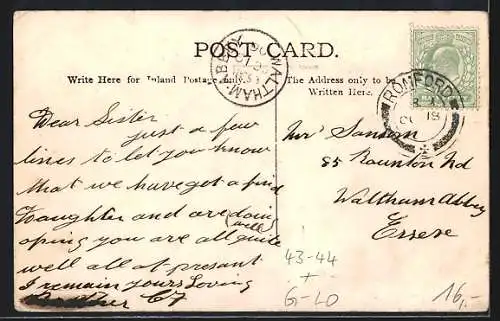 POST CARD.
Write Here for Inland Postage only.
The Address only to be
Written Here.
WALTHAM ABBEY
ROMFORD
Dear Sister
just a few
lines to let you know
that we have got a
Daughter and are doin
well
oping you are all quite
well all at presant
I remain yours Loving
Brother
Mrs Sanson
85 Raunton Rd
Waltham Abbey
Essex
43-44
+
G-LO
16,-